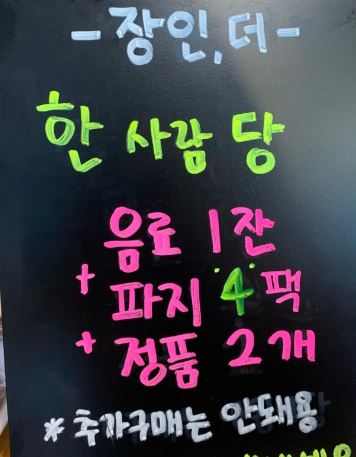 -장인, 더-
한 사람 당
음료 1잔
+ 파지 4팩
+ 정품 2개
*추가구매는 안돼용